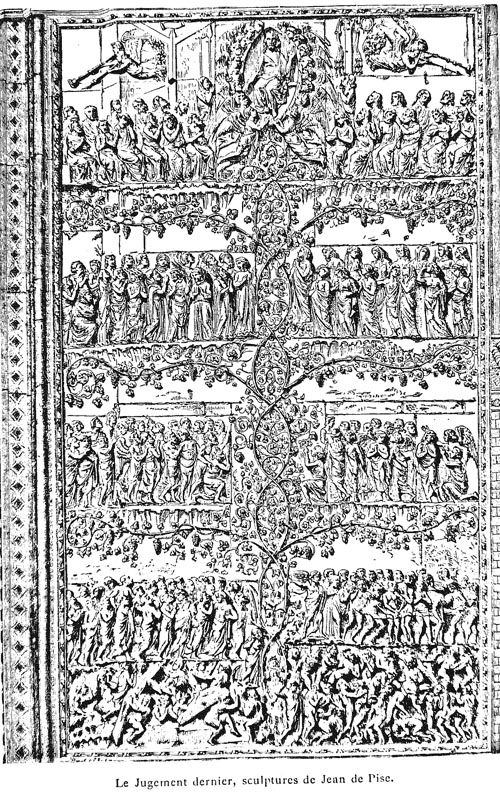 Le Jugement dernier, sculptures de Jean de Pise.